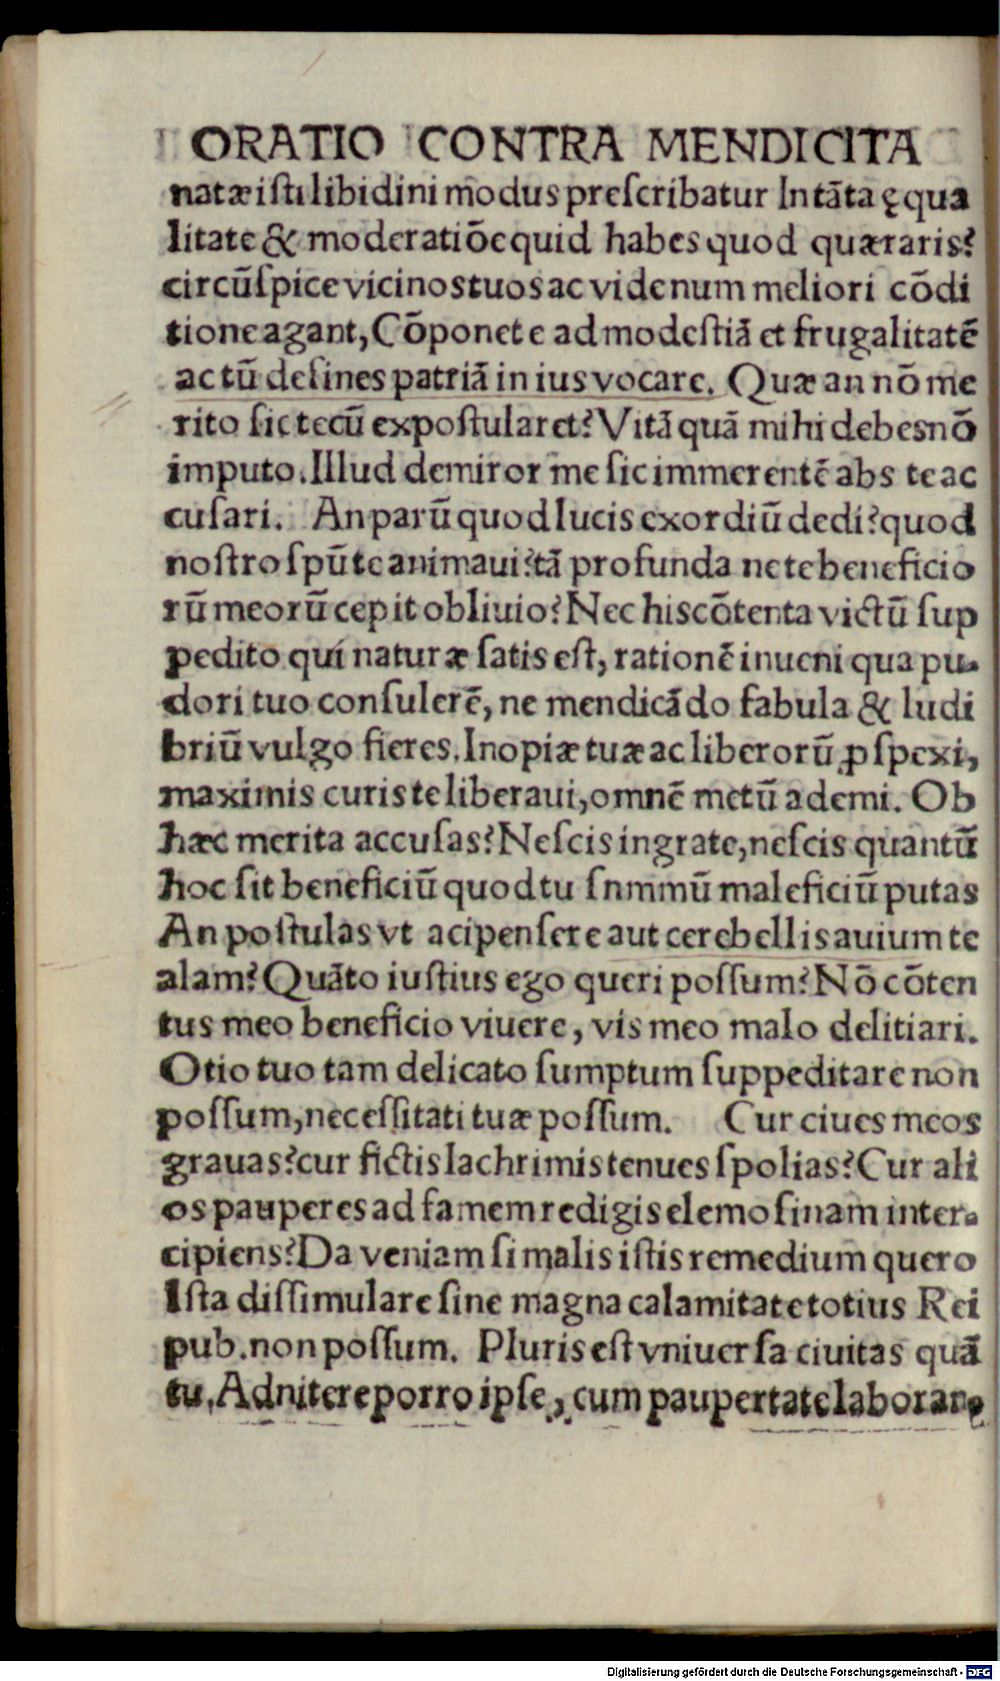 ORATIO CONTRA MENDICITA
natæ isti libidini modus prescribatur In tāta ęqua
litate & moderatiōe quid habes quod quæraris?
circūſpice vicinos tuos ac vide num meliori cōdi
tione agant, Cōpone te ad modeſtiā et frugalitatē
ac tū deſines patriā in ius vocare. Quæ an nō me
rito ſic tecū expoſtularet? Vitā quā mihi debes nō
imputo. Illud demiror me ſic immerentē abs te ac
cuſari. An parū quod lucis exordiū dedi? quod
noſtro ſpū te animaui? tā profunda ne te beneficio
rū meorū cepit obliuio? Nec his cōtenta victū ſup
pedito qui naturæ ſatis eſt, rationē inueni qua pu-
dori tuo conſulerē, ne mendicādo fabula & ludi
briū vulgo fieres. Inopiæ tuæ ac liberorū ꝓſpexi,
maximis curis te liberaui, omnē metū ademi. Ob
hæc merita accuſas? Neſcis ingrate, neſcis quantū
hoc ſit beneficiū quod tu ſnmmū maleficiū putas
An poſtulas vt acipenſere aut cerebellis auium te
alam? Quāto iuſtius ego queri poſſum? Nō cōten
tus meo beneficio viuere, vis meo malo delitiari.
Otio tuo tam delicato ſumptum ſuppeditare non
poſſum, neceſſitati tuæ poſſum. Cur ciues meos
grauas? cur fictis lachrimis tenues ſpolias? Cur ali
os pauperes ad famem redigis elemoſinam inter-
cipiens? Da veniam ſi malis iſtis remedium quero
Iſta diſſimulare ſine magna calamitate totius Rei
pub. non poſſum. Pluris eſt vniuerſa ciuitas quā
tu. Adnitere porro ipſe, cum paupertate laborare
Digitalisierung gefördert durch die Deutsche Forschungsgemeinschaft - DFG